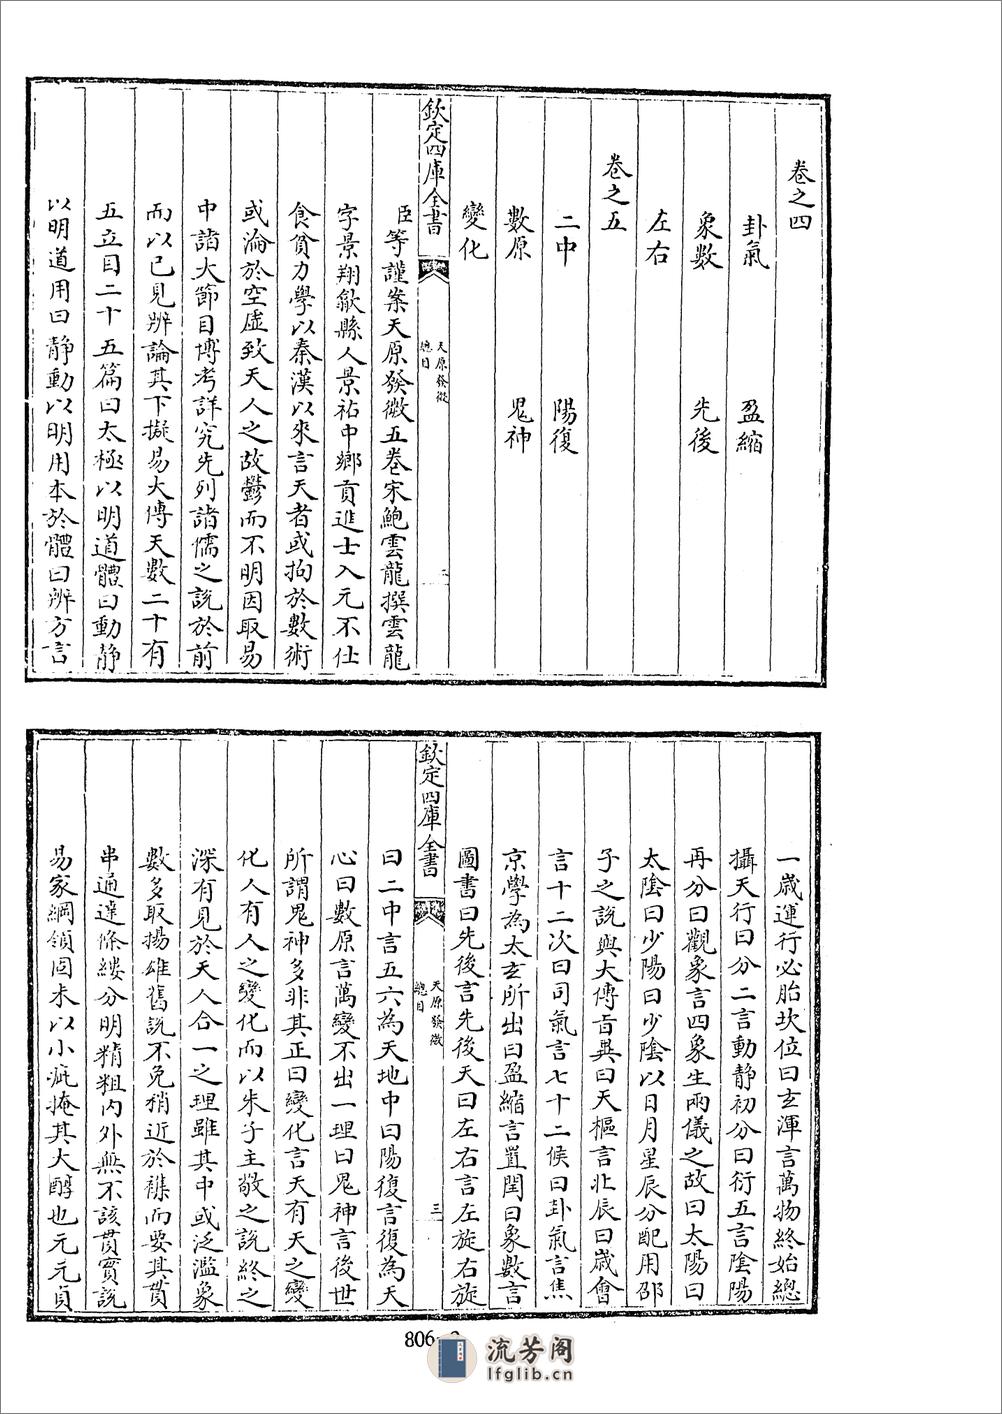 卷之四
卦氣 盈縮
象數 先後
左右
卷之五
二中 陽復
數原 鬼神
變化
欽定四庫全書
天原發微
總目
二
臣等謹案天原發微五卷宋鮑雲龍撰雲龍
字景翔歙縣人景祐中鄉貢進士入元不仕
食貧力學以秦漢以來言天者或拘於數術
或淪於空虛致天人之故鬱而不明因取易
中諸大節目博考詳究先列諸儒之說於前
而以已見辨論其下擬易大傳天數二十有
五立目二十五篇曰太極以明道體曰動靜
以明道用曰靜動以明用本於體曰辨方言
一歲運行必胎坎位曰玄渾言萬物終始總
攝天行曰分二言動靜初分曰衍五言陰陽
再分曰觀象言四象生兩儀之故曰太陽曰
太陰曰少陽曰少陰以日月星辰分配用邵
子之說與大傳旨異曰天樞言北辰曰歲會
言十二次曰司氣言七十二侯曰卦氣言焦
京學為太玄所出曰盈縮言置閏曰象數言
圖書曰先後言先後天曰左右言左旋右旋
欽定四庫全書
天原發微
總目
三
曰二中言五六為天地中曰陽復言復為天
心曰數原言萬變不出一理曰鬼神言後世
所謂鬼神多非其正曰變化言天有天之變
化人有人之變化而以朱子主敬之說終之
深有見於天人合一之理雖其中或泛濫象
數多取揚雄舊說不免稍近於襍而要其貫
串通達條縷分明精粗內外無不該貫實說
易家綱領固未以小疵掩其大醇也元元貞
806-2
流芳阁
lfglib.cn